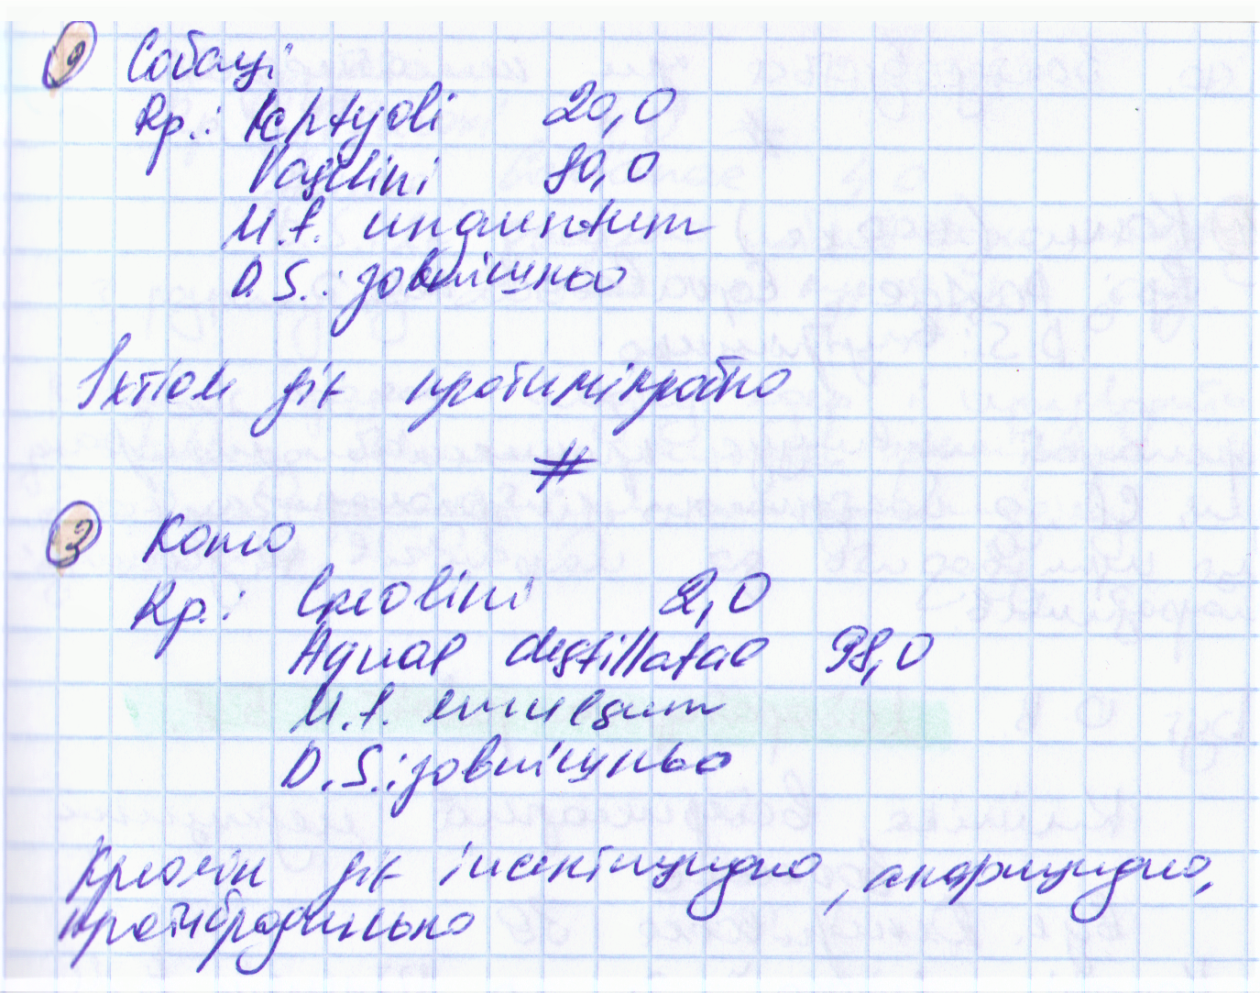 2 Собаці
Rp.: Ichtyoli 20,0
Vaselini 80,0
M.f. unguentum
D.S.: зовнішньо
Іхтіол діє протимікробно
#
3 Коню
Rp.: Creolini 2,0
Aquae destillatae 98,0
M.f. emulsum
D.S.: зовнішньо
Креолін діє інсектицидно, акарицидно,
протибродильно